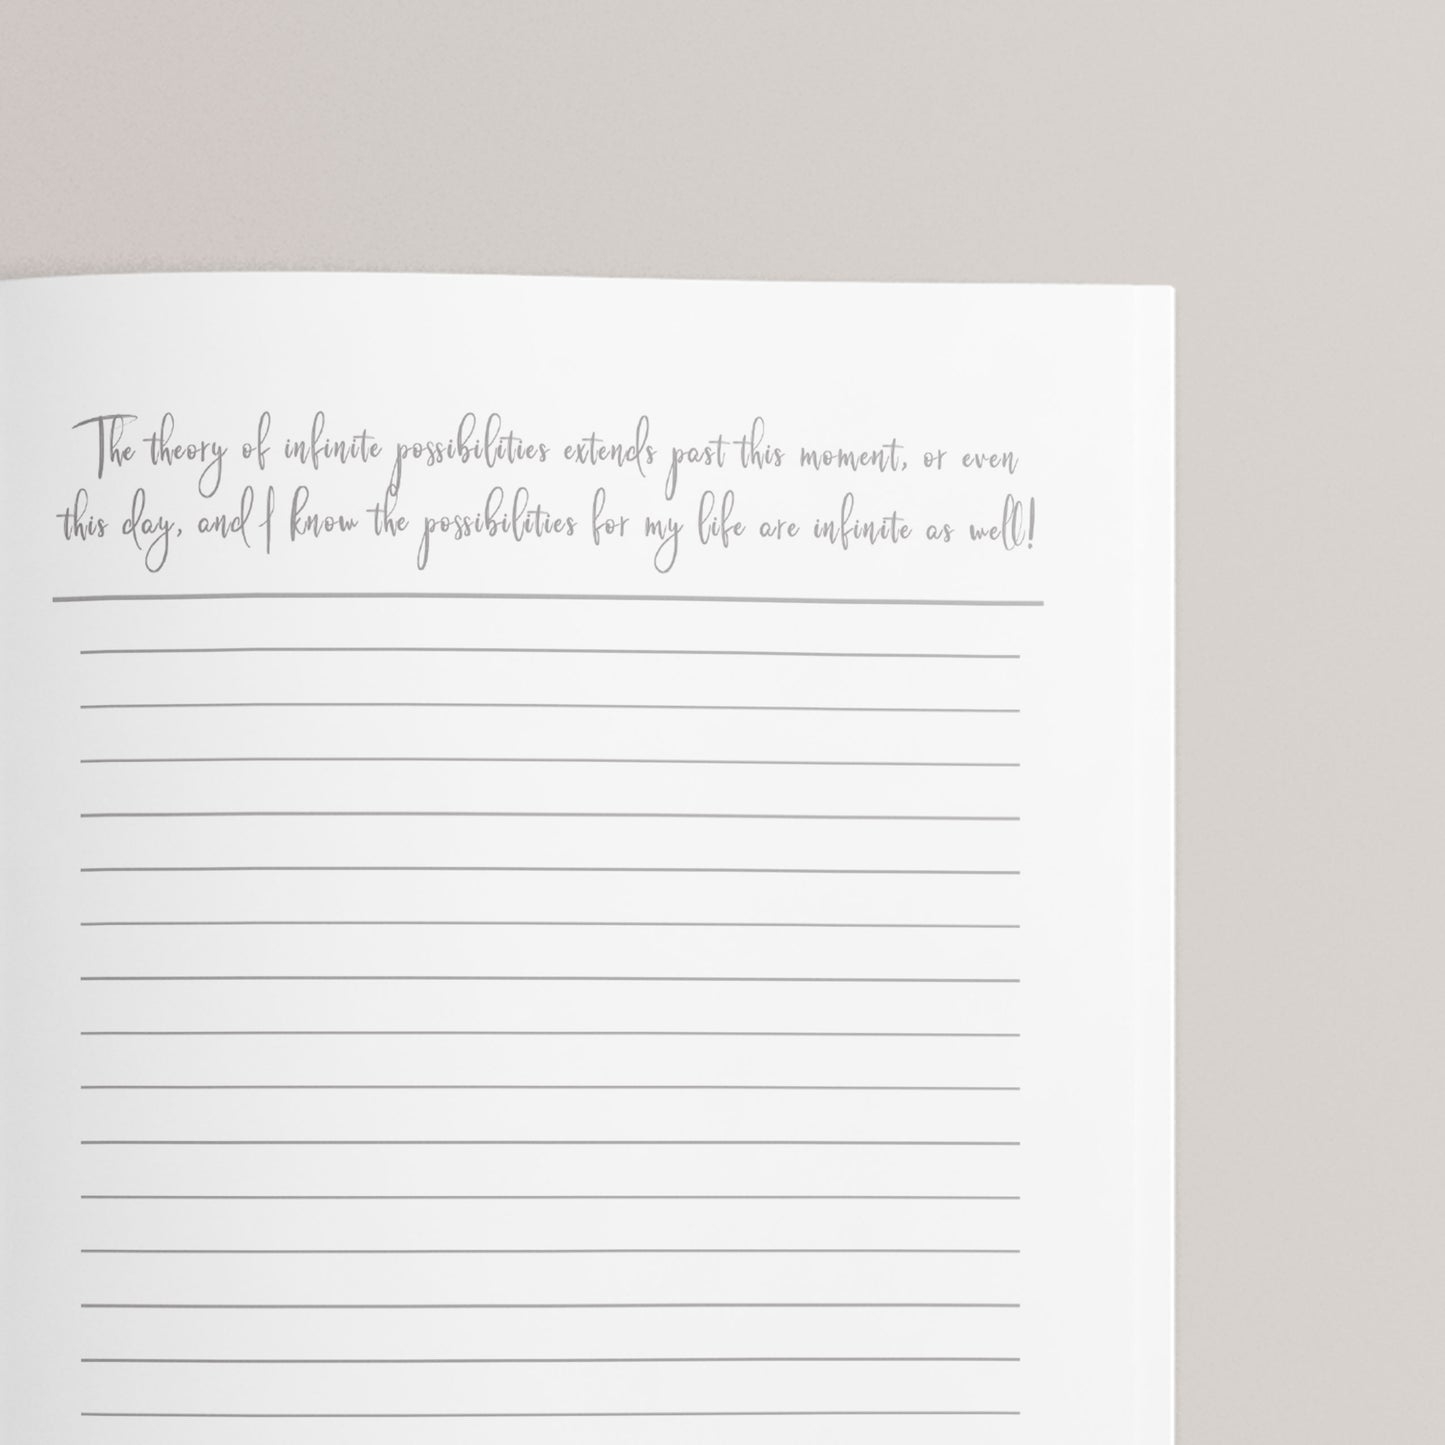 The theory of infinite possibilities extends past this moment, or even
this day, and I know the possibilities for my life are infinite as well!